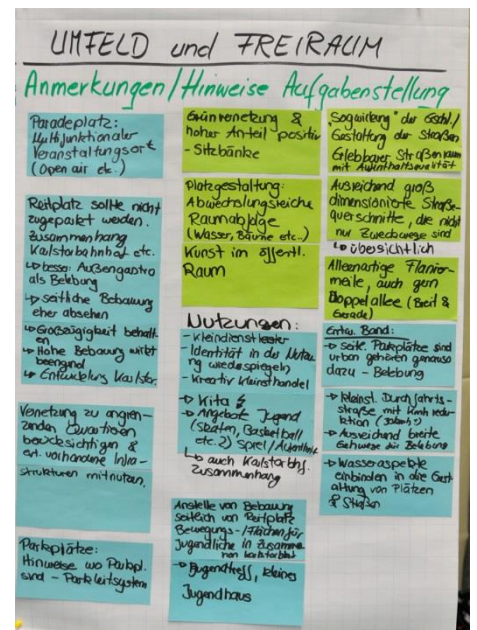 UMFELD und FREIRAUM
Anmerkungen/Hinweise Aufgabenstellung
Paradeplatz:
Multifunktionaler
Veranstaltungsort
(Open air etc.)
Reitplatz sollte nicht
zugeparkt werden.
Zusammenhang
Karlstorbahnhof etc.
↳ besser Außengastro
als Belebung
↳ seitliche Bebauung
eher absehen
↳ Großzügigkeit behalt-
en
↳ Hohe Bebauung wirkt
beengend
↳ Entwicklung Karlstor.
Vernetzung zu angren-
zenden Quartieren
berücksichtigen &
evt. vorhandene Infra-
strukturen mitnutzen.
Parkplätze:
Hinweise wo Parkpl.
sind - Parkleitsystem
Grünvernetzung &
hoher Anteil positiv
- Sitzbänke
Platzgestaltung:
Abwechslungsreiche
Raumabfolge
(Wasser, Bäume etc..)
Kunst im öffentl.
Raum
Nutzungen:
- Kleindienstleister
- Identität in der Nutzu
ng wiederspiegeln
- Kreativ kleinsthandel
→ Kita
→ Angebote Jugend
(skaten, Basketball
etc.) Spiel/Aufenthalt
↳ auch Karlstorbhf.
Zusammenhang
Anstelle von Bebauung
seitlich von Reitplatz
Bewegungs-/Flächen für
Jugendliche in Zusamme
→ Jugendtreff, kleines
Jugendhaus
"Sogwirkung" der
Gestaltung der Straßen
Erlebbarer Straßenraum
mit Aufenthaltsqualität
Ausreichend groß
dimensionierte Straße-
querschnitte, die nicht
nur Zweckwege sind
↳ übersichtlich
Alleenartige Flanier-
meile, auch gern
Doppelallee (Breit &
Gerade)
Band:
→ seitl. Parkplätze sind
urban gehören genauso
dazu - Belebung
→ Durchfahrts-
straße mit Kmh redu-
ktion
→ Ausreichend breite
Gehwege für Belebung
→ Wasseraspekte
einbinden in die Gest
altung von Plätzen
& Straßen